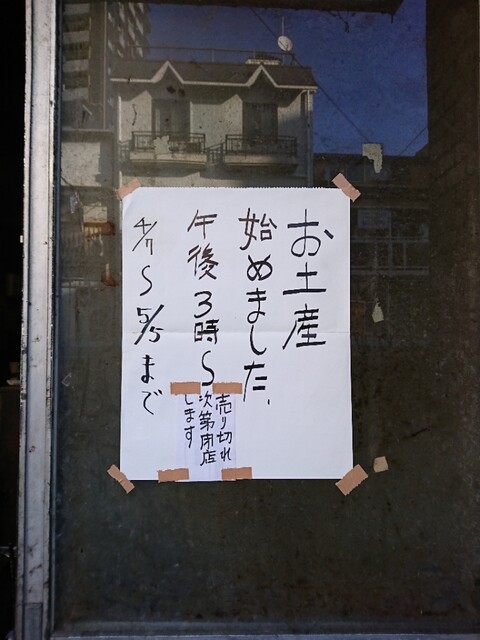 お土産
始めました。
午後3時〜
売り切れ
次第閉店
します
4/11〜5/5まで